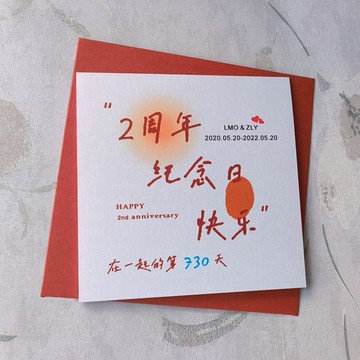 "2周年
LMO & ZLY
2020.05.20-2022.05.20
纪念日
HAPPY
2nd anniversary
快乐"
在一起的第730天